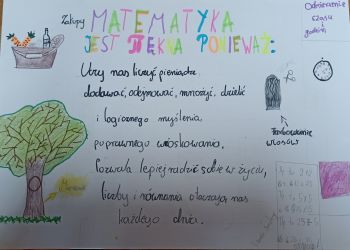 Zakupy
MATEMATYKA
JEST PIĘKNA PONIEWAŻ:
Odmierzanie
czasu
i
godzin
Uczy nas liczyć pieniądze
dodawać, odejmować, mnożyć, dzielić
i logicznego myślenia
poprawnego wnioskowania.
Farbowanie
włosów
Pozwala lepiej radzić sobie w życiu,
liczby i równania otaczają nas
każdego dnia.